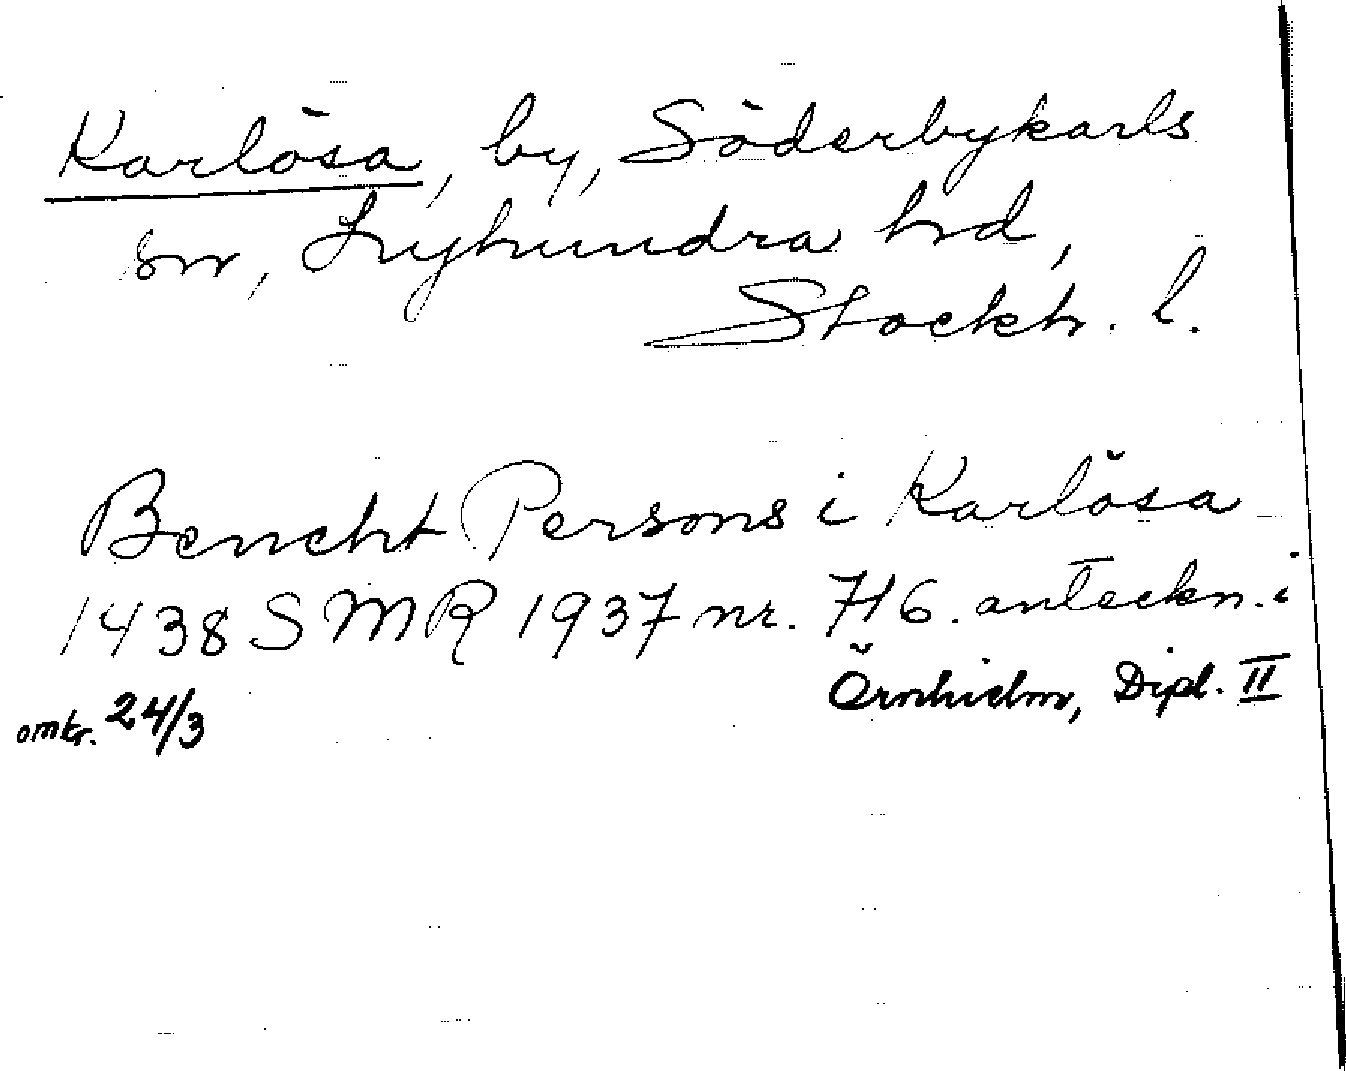 Karlösa, by, Söderbykarls
sn, Lyhundra hrd,
Stockh. l.
Bencht Persons i Karlösa
1438 SMR 1937 nr. 716. anteckn. i
omkr. 24/3 Örnhielm, Dipl. II